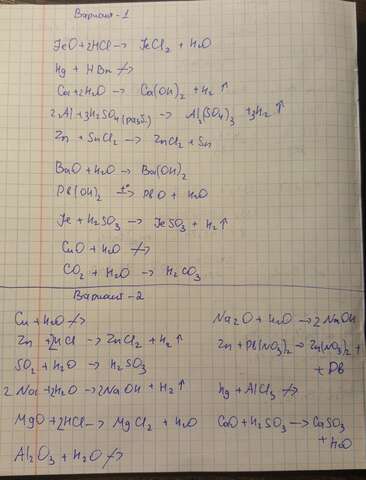 Вариант-1
FeO+2HCl→ FeCl₂ + H₂O
Hg + HBr ↛
Ca+2H₂O → Ca(OH)₂ + H₂↑
2Al+3H₂SO₄(разб.) → Al₂(SO₄)₃ +3H₂↑
Zn + SnCl₂ → ZnCl₂ + Sn
BaO + H₂O → Ba(OH)₂
Pb(OH)₂ t°→ PbO + H₂O
Fe + H₂SO₃ → FeSO₃ + H₂↑
CuO + H₂O ↛
CO₂ + H₂O → H₂CO₃
Вариант-2
Cu+H₂O ↛
Zn +2HCl → ZnCl₂ + H₂↑
SO₂ + H₂O → H₂SO₃
2Na+2H₂O→2NaOH + H₂↑
MgO+2HCl→ MgCl₂ + H₂O
Al₂O₃ + H₂O ↛
Na₂O + H₂O → 2NaOH
Zn + Pb(NO₃)₂→ Zn(NO₃)₂ +
+ Pb
Hg + AlCl₃ ↛
CaO+H₂SO₃ → CaSO₃
+ H₂O